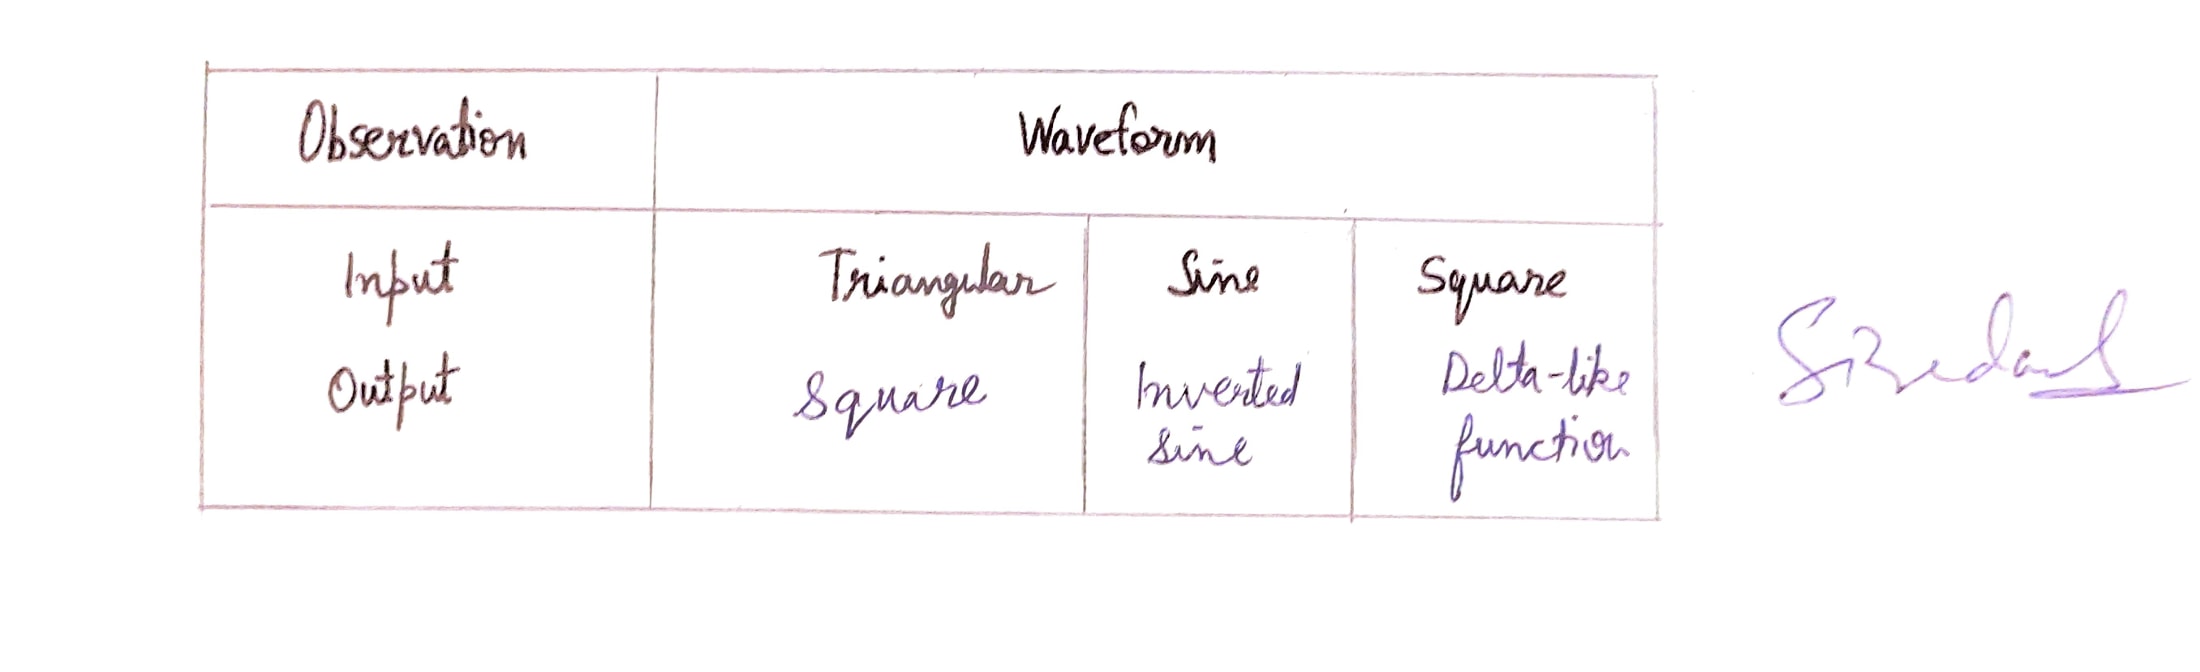 Observation Waveform
Input Triangular Sine Square
Output Square Inverted sine Delta-like function